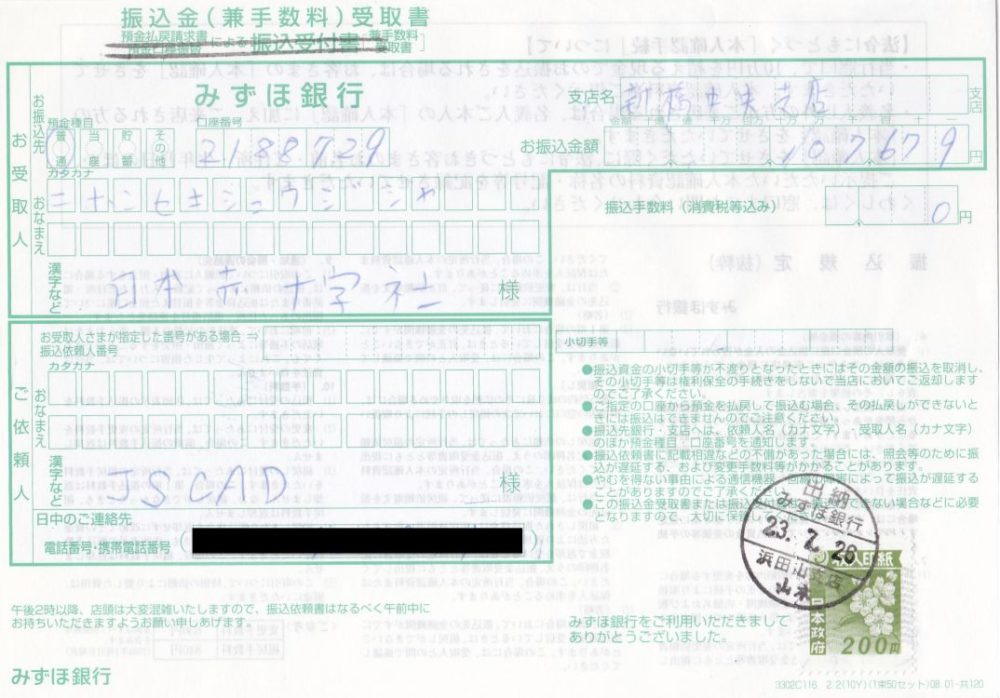 振込金（兼手数料）受取書
預金払戻請求書による振込受付書［兼手数料受取書］
みずほ銀行
支店名 新橋中央支店
お振込先
預金種目 口座番号
普通 当座 貯蓄 その他 2188729
お振込金額 107679円
お受取人
カタカナ
おなまえ ニホンセキジュウジシヤ
振込手数料（消費税等込み） 0円
漢字など 日本赤十字社 様
お受取人さまが指定した番号がある場合⇒
振込依頼人番号
小切手等
ご依頼人
カタカナ
おなまえ
漢字など JSCAD 様
日中のご連絡先
電話番号・携帯電話番号
●振込資金の小切手等が不渡りとなったときにはその金額の振込を取消し、
その小切手等は権利保全の手続きをしないで当店においてご返却します
のでご了承ください。
●ご指定の口座から預金を払戻して振込む場合、その払戻しができないと
きには振込はできませんのでご注意ください。
●振込先銀行・支店へは、依頼人名（カナ文字）、受取人名（カナ文字）
のほか預金種目・口座番号を通知します。
●振込依頼書に記載相違などの不備があった場合には、照会等のために振込
が遅延する、および変更手数料等がかかることがあります。
●やむを得ない事由による通信機器、回線の障害によって振込が遅延する
ことがありますのでご了承ください。
●この振込金受取書または振込受付書は
できない場合などに必要
となりますので、大切に保
出納
みずほ銀行
23.7.26
浜田山支店
山本
収入印紙
日本政府
200円
午後2時以降、店頭は大変混雑いたしますので、振込依頼書はなるべく午前中に
お持ちいただきますようお願い申しあげます。
みずほ銀行をご利用いただきまして
ありがとうございました。
みずほ銀行
3302C116 2.2(10Y)(1束50セット)08.01-共120